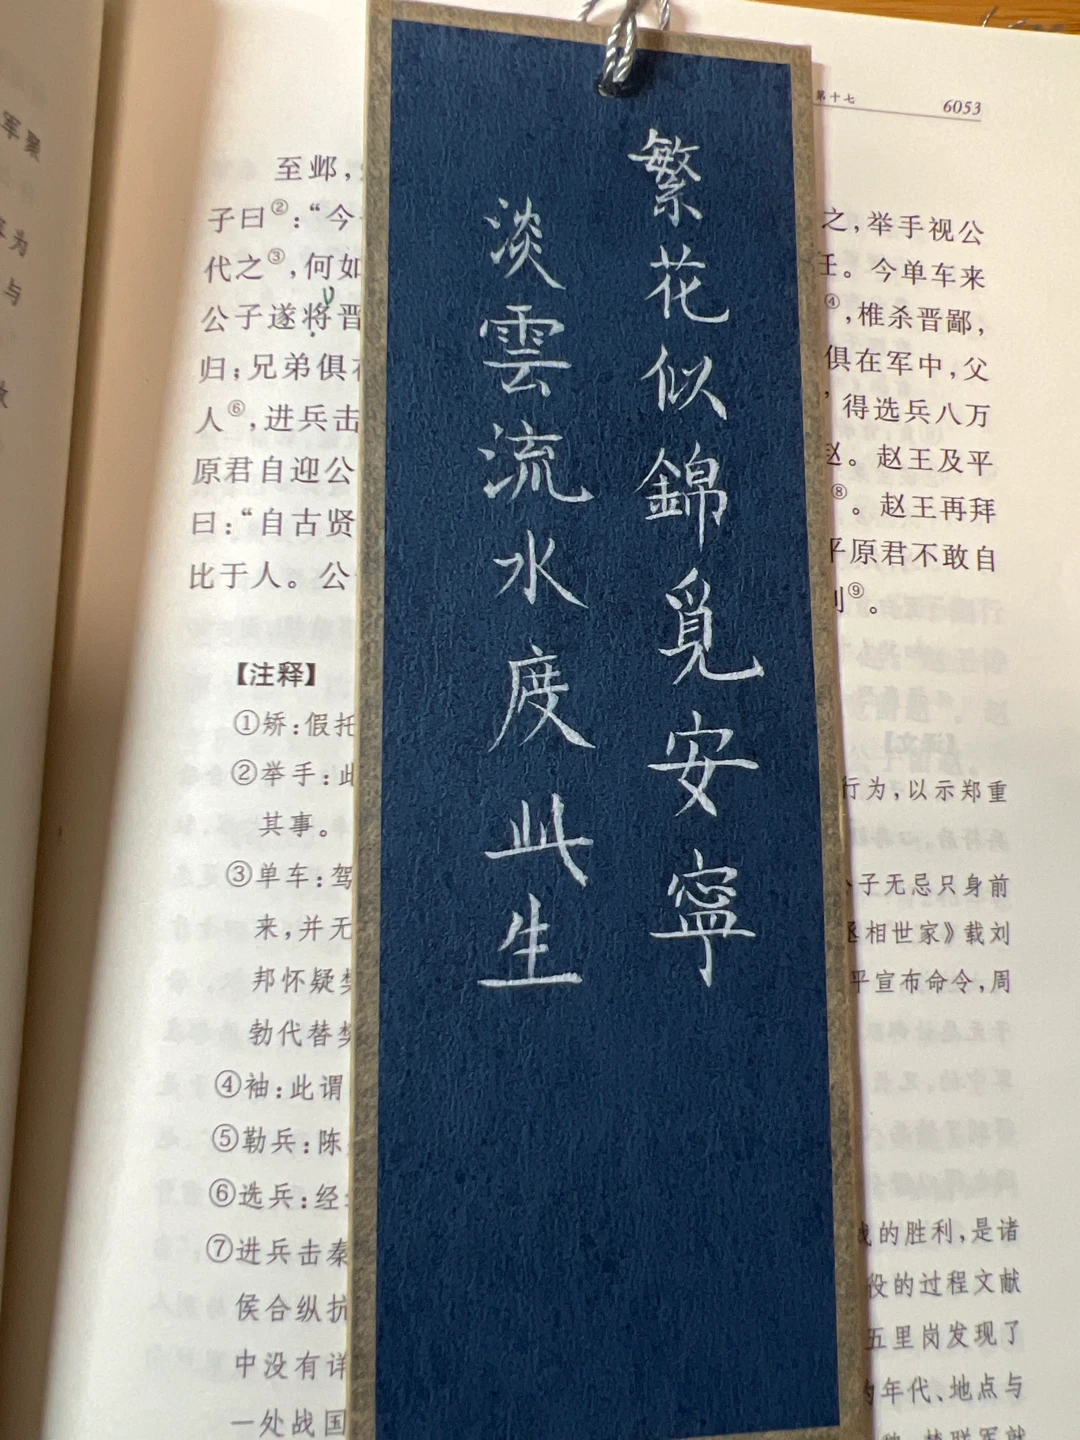 繁花似錦覓安寧
淡雲流水度此生
第十七
6053
至邺，
子曰②：“今
代之③，何如
公子遂将晋
归；兄弟俱在
人⑥，进兵击
原君自迎公
曰：“自古贤
比于人。公
之，举手视公
任。今单车来
④，椎杀晋鄙，
俱在军中，父
，得选兵八万
赵。赵王及平
⑧。赵王再拜
平原君不敢自
⑨。
【注释】
①矫：假托
②举手：此
其事。
③单车：驾
来，并无
邦怀疑樊
勃代替樊
④袖：此谓
⑤勒兵：陈
⑥选兵：经
⑦进兵击秦
侯合纵抗
中没有详
一处战国
行为，以示郑重
公子无忌只身前
丞相世家》载刘
平宣布命令，周
战的胜利，是诸
役的过程文献
五里岗发现了
的年代、地点与
楚联军就
军
为
与